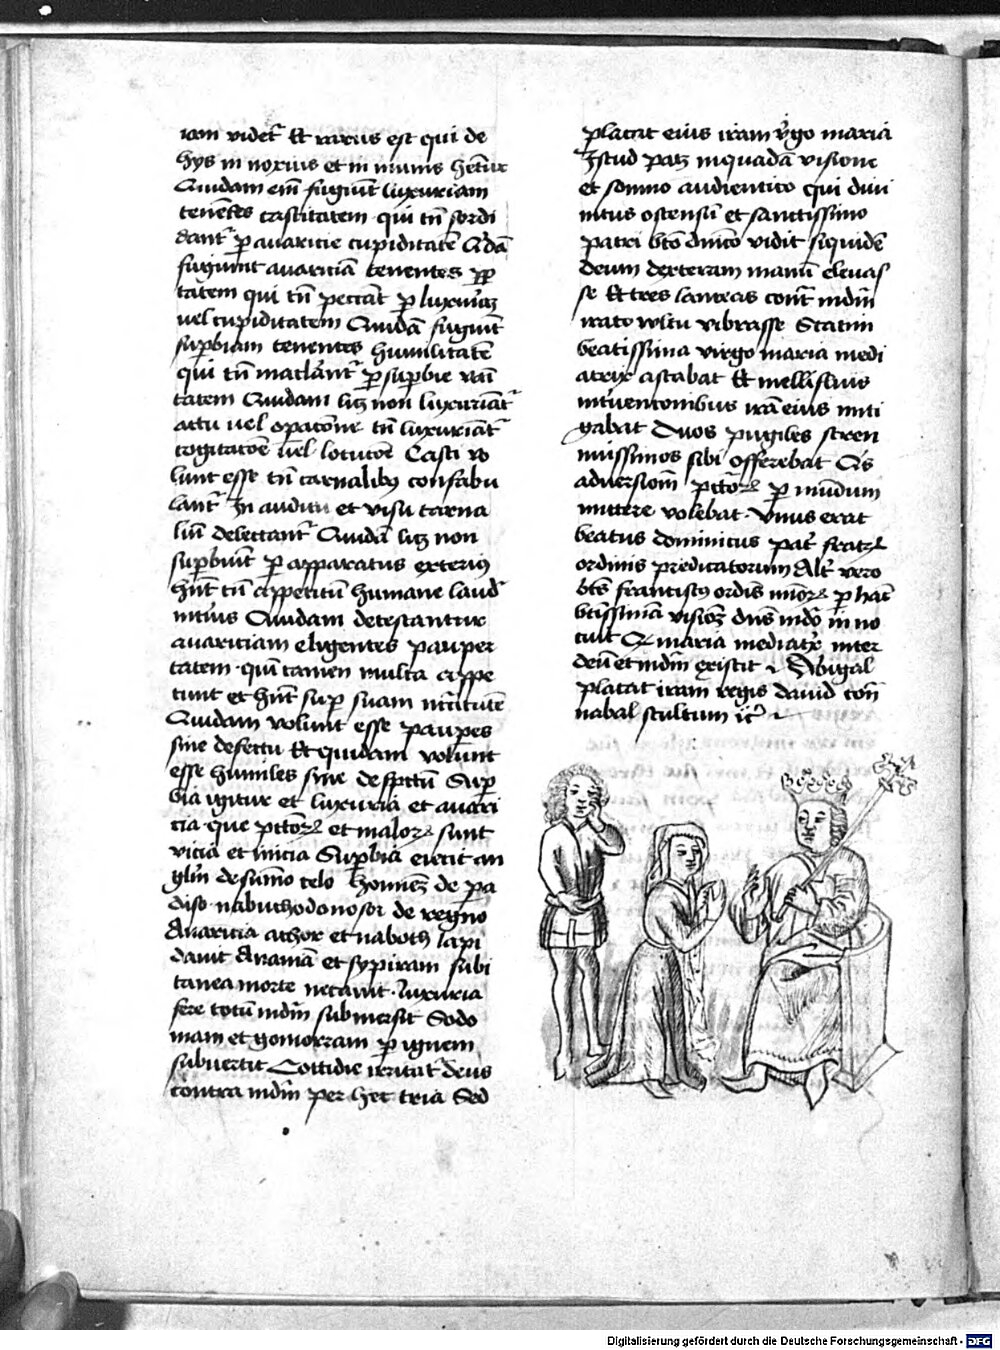 iam videt᷑ Et rarus est qui de
hys in noxius et in munis het᷑ur
Quidam em̄ fugiūt luxuriam
tenētes castitatem qui tn̄ sordi
dant᷑ ꝑ avaricie cupiditatē Qdā
fugiunt avariciā tenentes
tatem qui tn̄ peccāt ꝑ luxuriaꝫ
vel cupiditatem Quidā fugiūt
suꝑbiam tenentes humilitatē
qui tn̄ maclant᷑ ꝑ suꝑbie vani
tatem Quidam licꝫ non luxuriāt᷑
actu vel oꝑacōne tn̄ luxuriāt᷑
cogitacōe vel locucōe Casti vo
lunt esse tn̄ carnalibꝯ confabu
lant᷑ In auditu et visu carna
liū delectant᷑ Quidā licꝫ non
suꝑbiūt ꝑ apparatus exteriꝯ
hn̄t tn̄ appetitū humane laud᷑
intꝰius Quidam detestantur
avariciam eligentes pauper
tatem qui tamen multa appe
tunt et hn̄t suꝑ suam nccītatē
Quidam volunt esse pauꝑes
sine defectu Et quidam volunt
esse humiles sine despctū Suꝑ
bia igitur et luxuria et avari
cia que pctōꝝ et maloꝝ sunt
vicia et inicia Suꝑbia eiecit an
glm̄ de sūmo celo hominē de pa
diso nabuchodonosor de regno
Avaricia achor et naboth lapi
davit Ananiā et syphiram subi
tanea morte necavit luxuria
fere totū mdm̄ submersit Sodo
mam et gomorram ꝑ ignem
subvertit Cottidie irritat᷑ deus
contra mdm̄ per hec tria Sed
placat eius iram v᷑go maria
Istud patꝫ in quadā visione
et somno audientico qui divi
nitus ostensū et sanctissimo
patri bt̄o dnīco vidit siquidē
deum dexteram manū elevas
se Et tres lanceas cont᷑ mdm̄
irato vultu vibrasse Statim
beatissima virgo maria medi
atrix astabat Et mellifluis
intᷣventionibus irā eius miti
gabat Duos pugiles stren
nuissimos sibi offerebat Qs
ad versiōm̄ pctōꝝ ꝑ mūdum
mittere volebat Unus erat
beatus dominicus pat᷑ fratꝝ
ordinis predicatorum Alt᷑ vero
bt̄s franciscꝯ ordīs mīoꝝ ꝑ hāc
bt̄issimā visioꝫ dn̄s mdō in no
tuit Qꝫ maria mediatᷓx inter
deū et mdm̄ existit Abigal
placat iram regis david con
nabal stultum